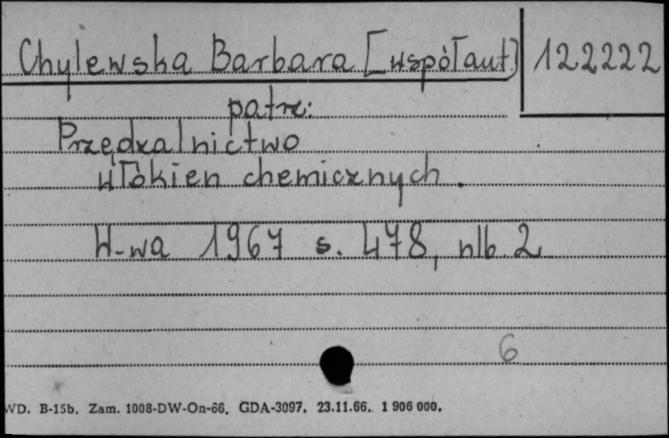 Chylewska Barbara [współaut] 122222
patrz:
Przędzalnictwo
włókien chemicznych.
W-wa 1967 s. 478, nlb. 2
6
WD. B-15b. Zam. 1008-DW-On-66. GDA-3097. 23.11.66. 1 906 000.